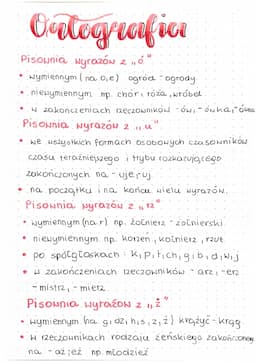 Ortografia
Pisownia wyrazów z „ó"
• wymiennym (na o, e) ogród - ogrody
• niewymiennym np. chór, róża, wróbel
• w zakończeniach rzeczowników -ów, -ówka, -ówna
Pisownia wyrazów z „u"
• we wszystkich formach osobowych czasowników
czasu teraźniejszego i trybu rozkazującego
zakończonych na -uje, -uj
• na początku i na końcu wielu wyrazów.
Pisownia wyrazów z „rz"
• wymiennym (na r) np. żołnierz - żołnierski
• niewymiennym np. korzeń, kołnierz, rzut
• po spółgłoskach: k, p, t, ch, g, b, d, w, j
• w zakończeniach rzeczowników -arz, -erz
-mistrz, -mierz
Pisownia wyrazów z „ż"
• wymiennym (na g, dz, h, s, z, ź) krążyć - krąg
• w rzeczownikach rodzaju żeńskiego zakończonego
na -aż, eż np. młodzież